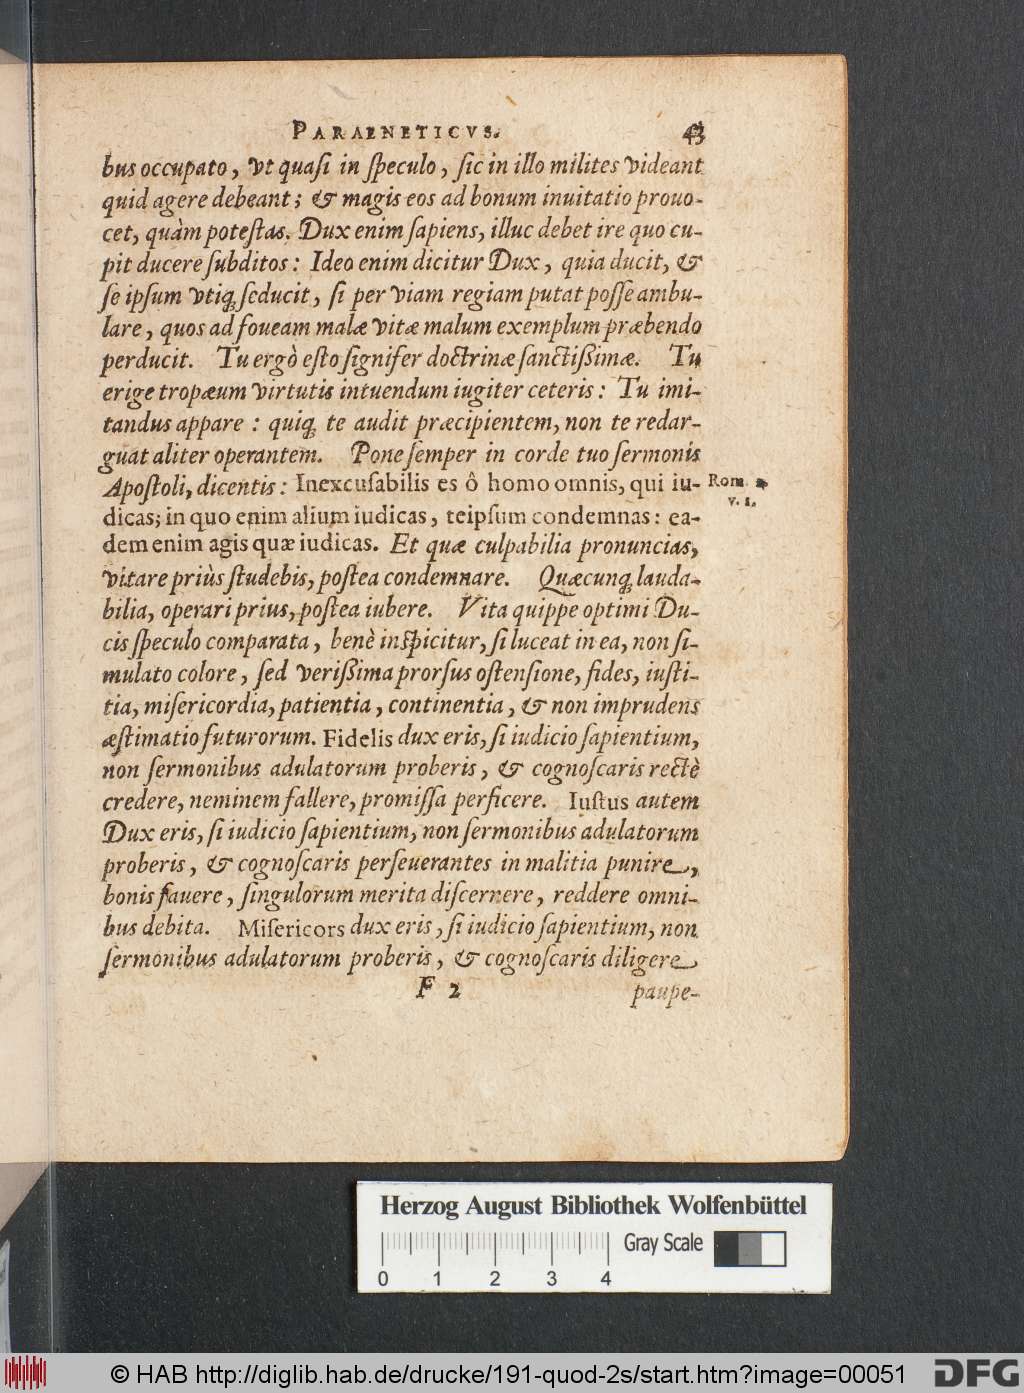 PARAENETICVS. 43
bus occupato, vt quasi in speculo, sic in illo milites videant
quid agere debeant; & magis eos ad bonum inuitatio prouo-
cet, quàm potestas. Dux enim sapiens, illuc debet ire quo cu-
pit ducere subditos: Ideo enim dicitur Dux, quia ducit, &
se ipsum vtiq; seducit, si per viam regiam putat posse ambu-
lare, quos ad foueam malæ vitæ malum exemplum præbendo
perducit. Tu ergò esto signifer doctrinæ sanctißimæ. Tu
erige tropæum virtutis intuendum iugiter ceteris: Tu imi-
tandus appare: quiq; te audit præcipientem, non te redar-
guat aliter operantem. Pone semper in corde tuo sermonis
Apostoli, dicentis: Inexcusabilis es ô homo omnis, qui iu- Rom. 2.
v. 1.
dicas; in quo enim alium iudicas, teipsum condemnas: ea-
dem enim agis quæ iudicas. Et quæ culpabilia pronuncias,
vitare priùs studebis, postea condemnare. Quæcunq; lauda-
bilia, operari prius, postea iubere. Vita quippe optimi Du-
cis speculo comparata, benè inspicitur, si luceat in ea, non si-
mulato colore, sed verißima prorsus ostensione, fides, iusti-
tia, misericordia, patientia, continentia, & non imprudens
æstimatio futurorum. Fidelis dux eris, si iudicio sapientium,
non sermonibus adulatorum proberis, & cognoscaris rectè
credere, neminem fallere, promissa perficere. Iustus autem
Dux eris, si iudicio sapientium, non sermonibus adulatorum
proberis, & cognoscaris perseuerantes in malitia punire,
bonis fauere, singulorum merita discernere, reddere omni-
bus debita. Misericors dux eris, si iudicio sapientium, non
sermonibus adulatorum proberis, & cognoscaris diligere
F 2 paupe-
Herzog August Bibliothek Wolfenbüttel
Gray Scale
0 1 2 3 4
© HAB http://diglib.hab.de/drucke/191-quod-2s/start.htm?image=00051 DFG